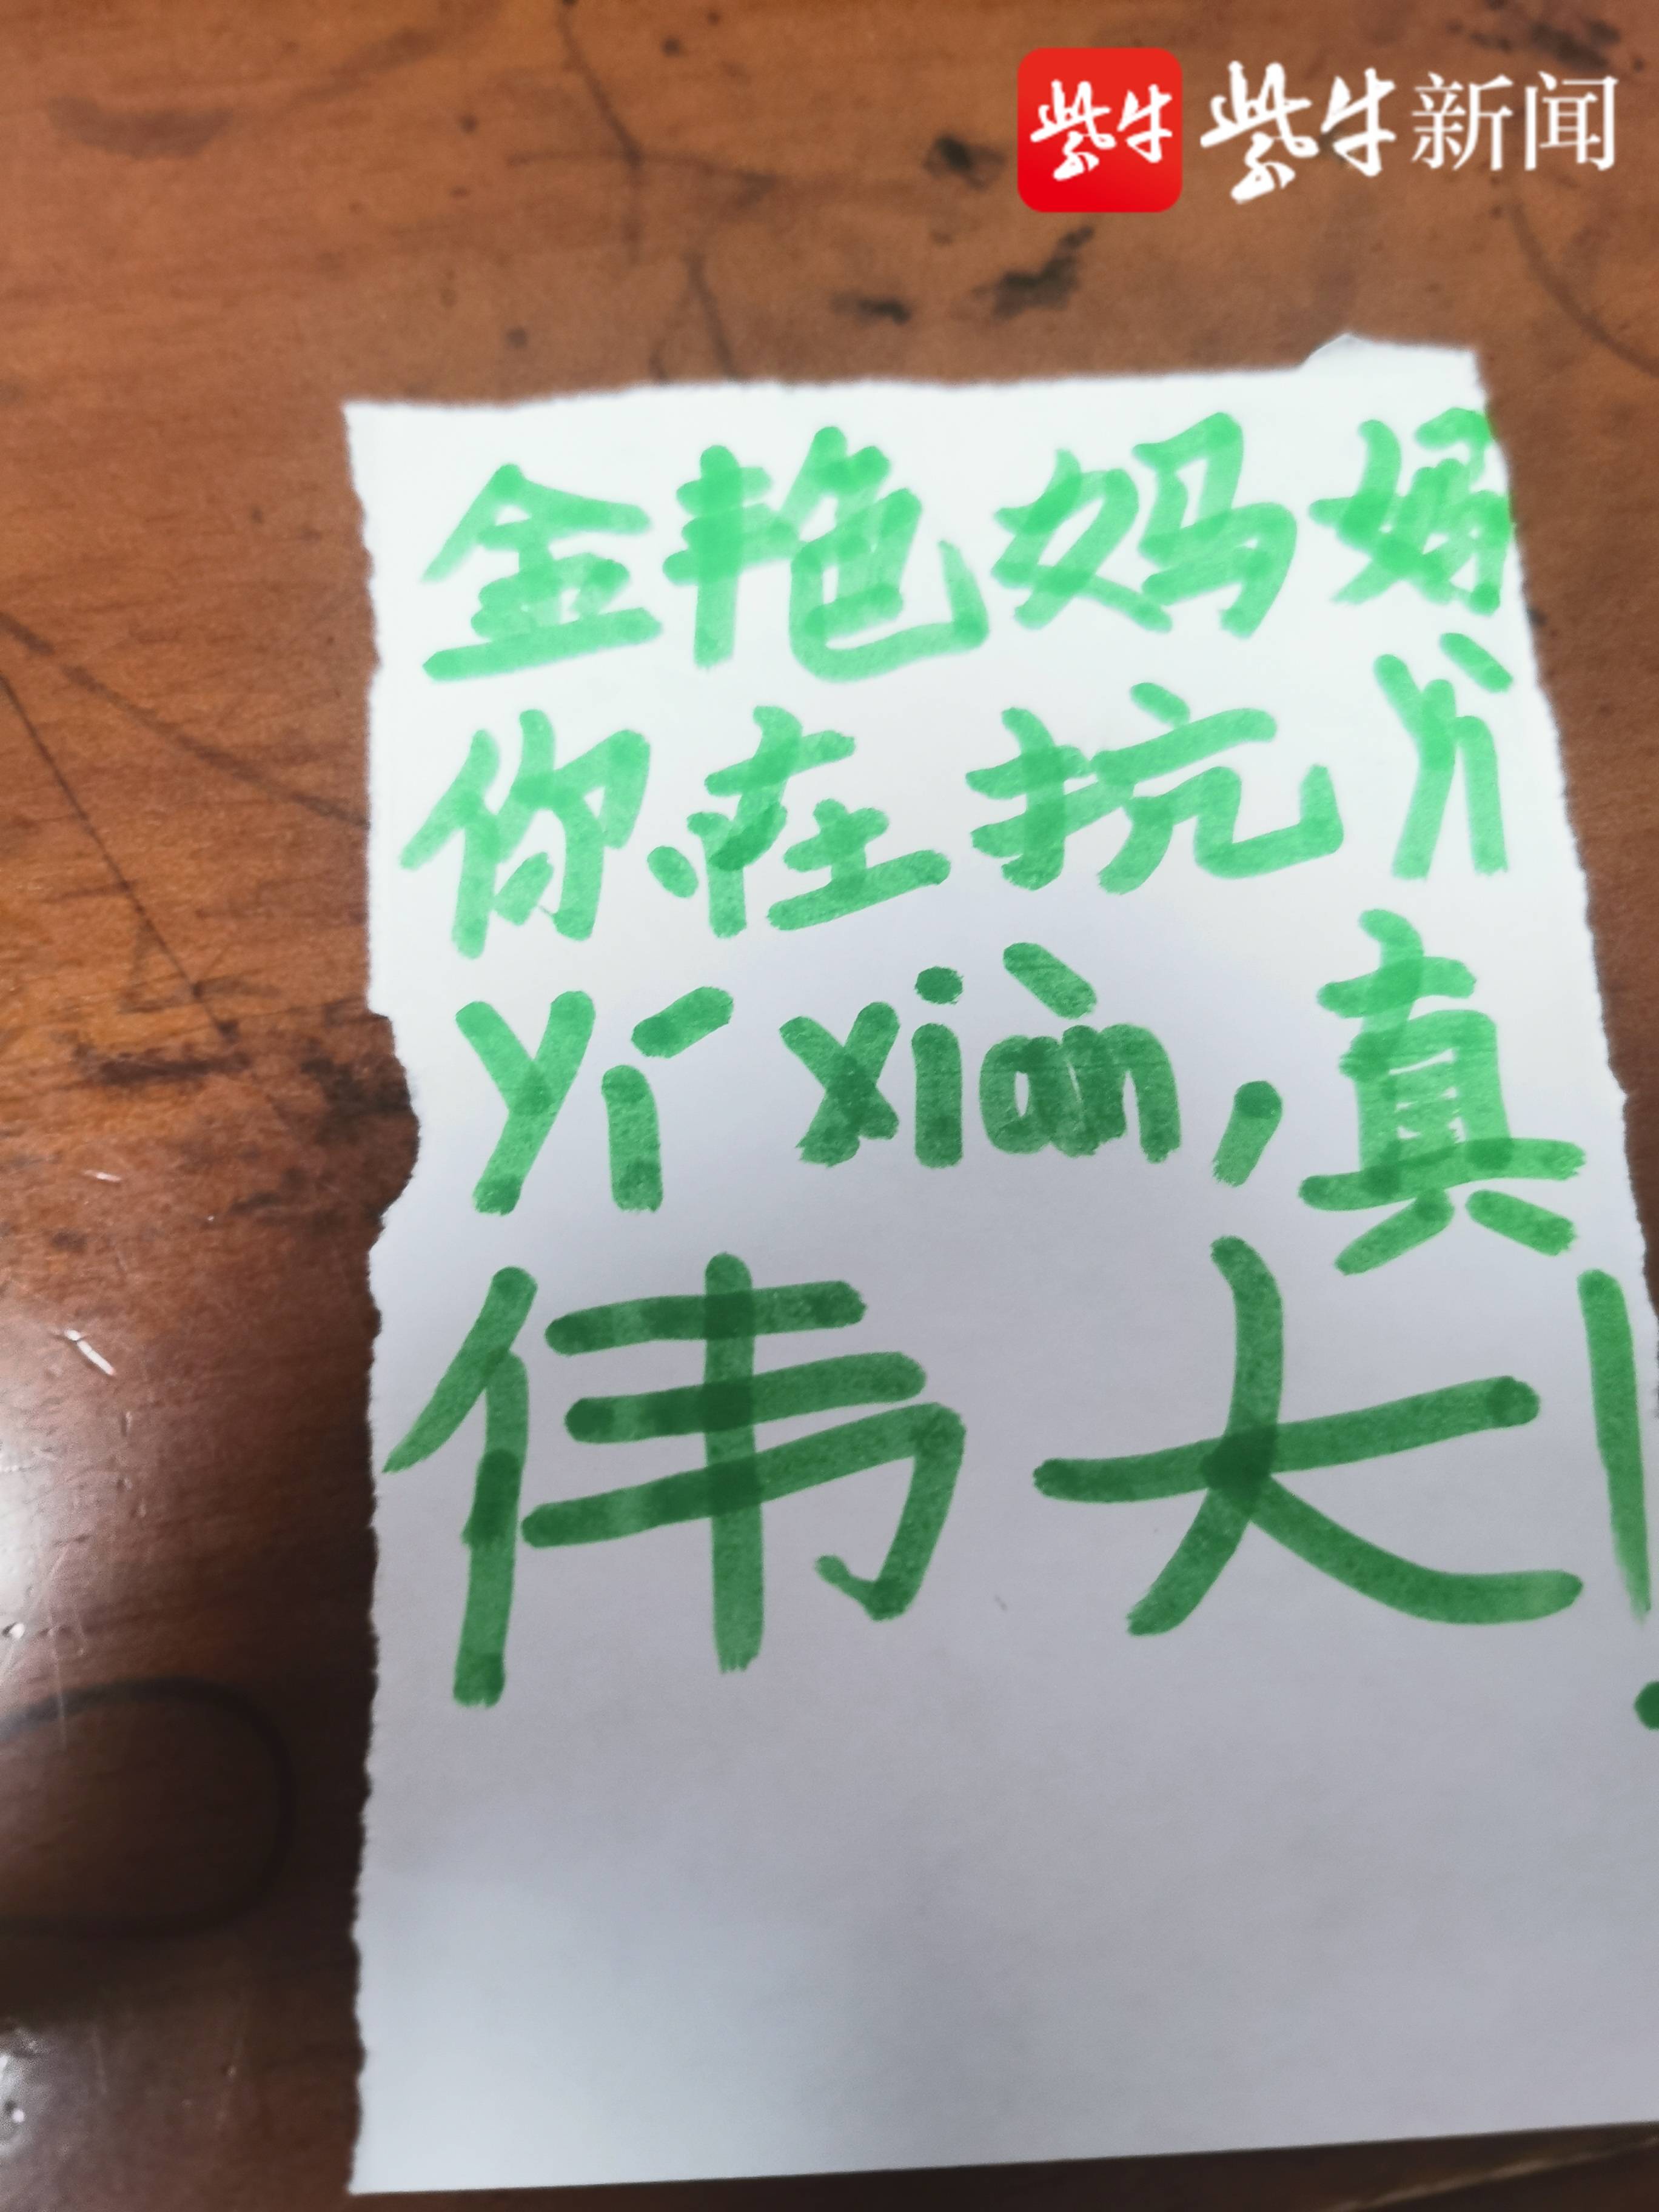 紫牛 紫牛新闻
金艳妈妈
你在抗yì
yí xiàn，真
伟大！